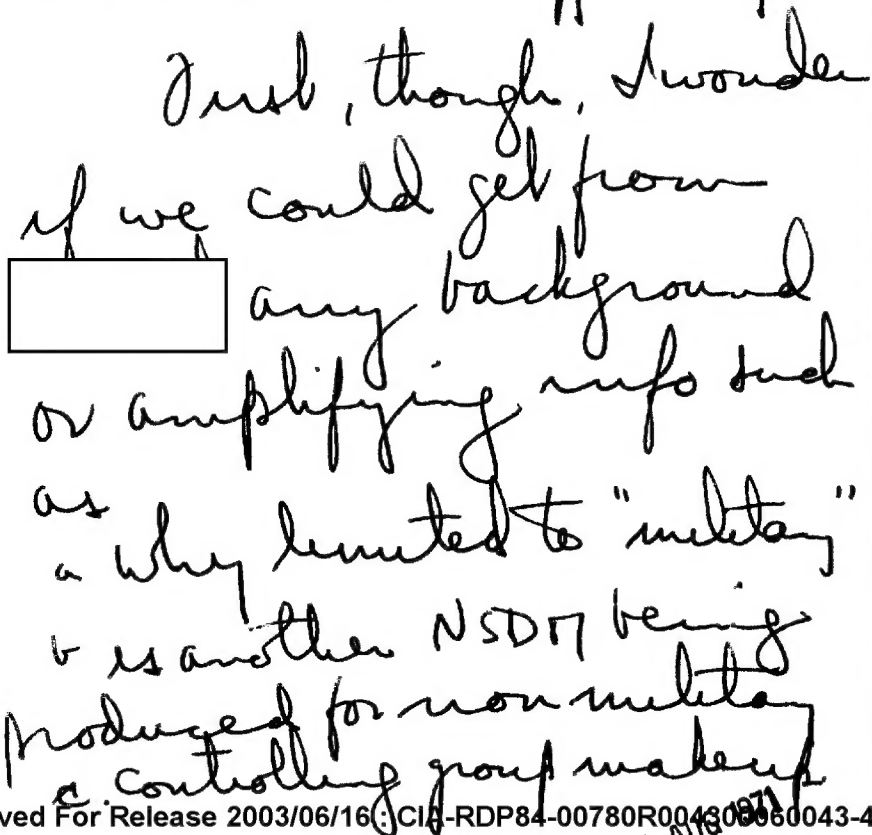 First, though, I wonder
if we could get from
any background
or amplifying info such
as
a why limited to "military"
b is another NSDM being
produced for non military
c. controlling group makeup
ved For Release 2003/06/16 : CIA-RDP84-00780R004300060043-4
1971